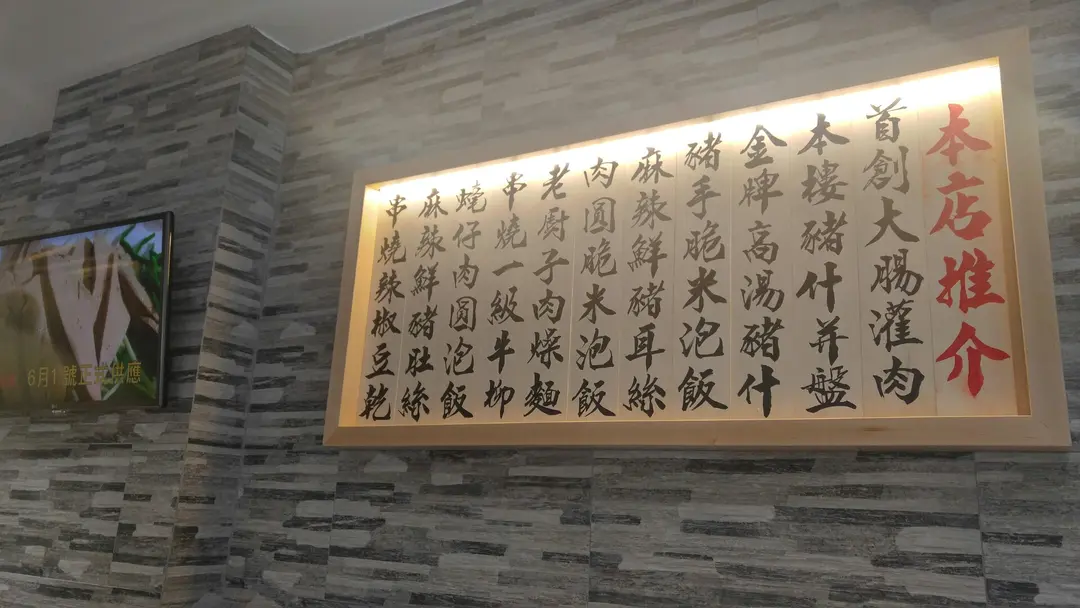 本店推介
首創大腸灌肉
本樓豬什并盤
金牌高湯豬什
豬手脆米泡飯
麻辣鮮豬耳絲
肉圓脆米泡飯
老厨子肉燥麵
串燒一級牛柳
蟯仔肉圓泡飯
麻辣鮮豬肚絲
串燒辣椒豆乾
6月1號正式供應